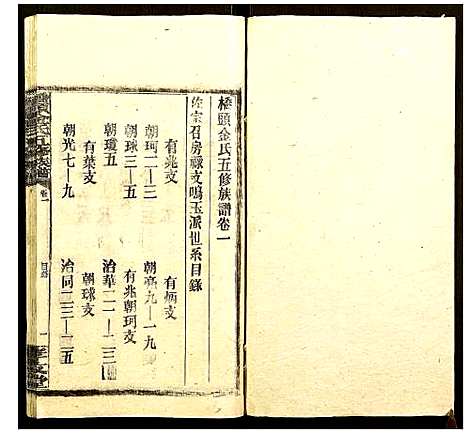 橋頭金氏五修族譜卷一
佐宝召房祿支鳴玉派世系目錄
有兆支
有炳支
朝珂一—三
朝亮九—一九
朝球三—五
有兆朝珂支
朝瓊五
治華二一—二三
有葉支
朝球支
朝光七—九
治同二三—三五
橋頭金氏五修族譜
卷一
目錄
一